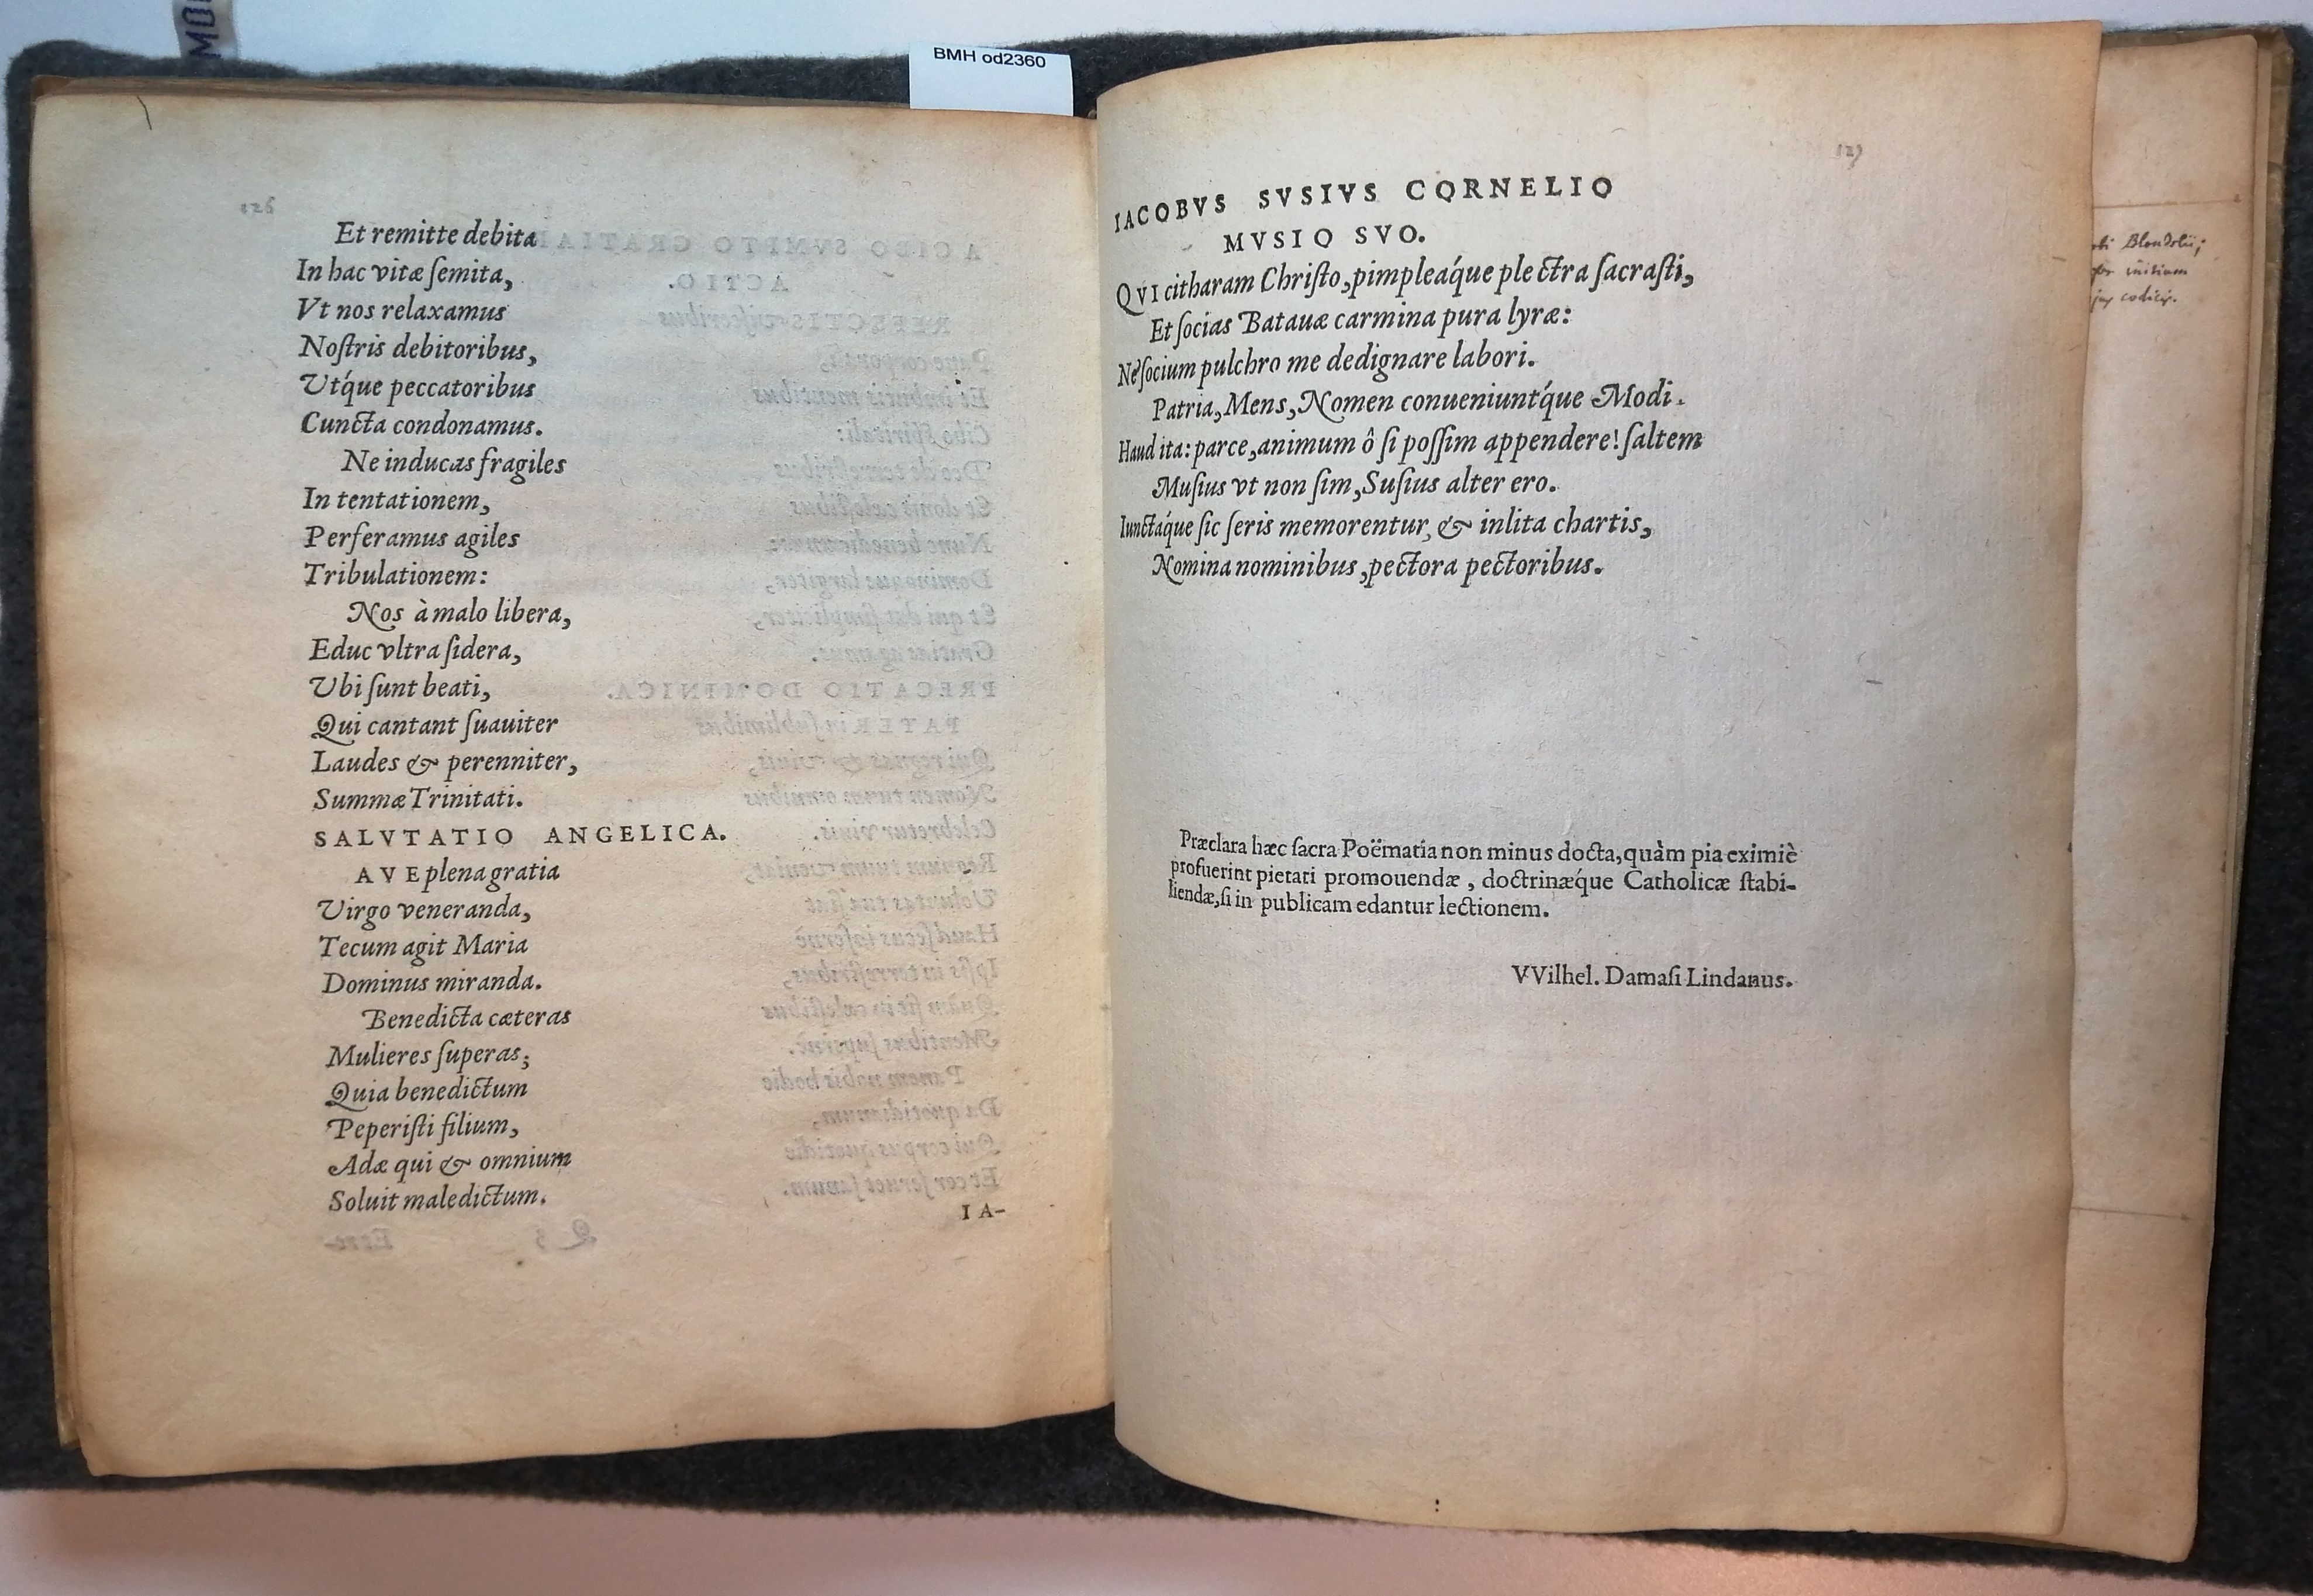 BMH od2360
Et remitte debita
In hac vitæ ſemita,
Vt nos relaxamus
Noſtris debitoribus,
Utq́ue peccatoribus
Cuncta condonamus.
Ne inducas fragiles
In tentationem,
Perferamus agiles
Tribulationem:
Nos à malo libera,
Educ vltra ſidera,
Ubi ſunt beati,
Qui cantant ſuauiter
Laudes & perenniter,
Summæ Trinitati.
SALVTATIO ANGELICA.
AVE plena gratia
Virgo veneranda,
Tecum agit Maria
Dominus miranda.
Benedicta cæteras
Mulieres ſuperas;
Quia benedictum
Peperiſti filium,
Adæ qui & omnium
Soluit maledictum.
IA-
129
IACOBVS SVSIVS CORNELIO
MVSIO SVO.
QVI citharam Chriſto, pimpleaq́ue plectra ſacraſti,
Et ſocias Batauæ carmina pura lyræ:
Ne ſocium pulchro me dedignare labori.
Patria, Mens, Nomen conueniuntq́ue Modi.
Haud ita: parce, animum ô ſi poſſim appendere! ſaltem
Muſius vt non ſim, Suſius alter ero.
Iunctaq́ue ſic ſeris memorentur, & inlita chartis,
Nomina nominibus, pectora pectoribus.
Præclara hæc ſacra Poëmatia non minus docta, quàm pia eximiè
profuerint pietati promouendæ, doctrinæq́ue Catholicæ ſtabi-
liendæ, ſi in publicam edantur lectionem.
VVilhel. Damaſi Lindanus.
Blondelii;
initium
codicis.